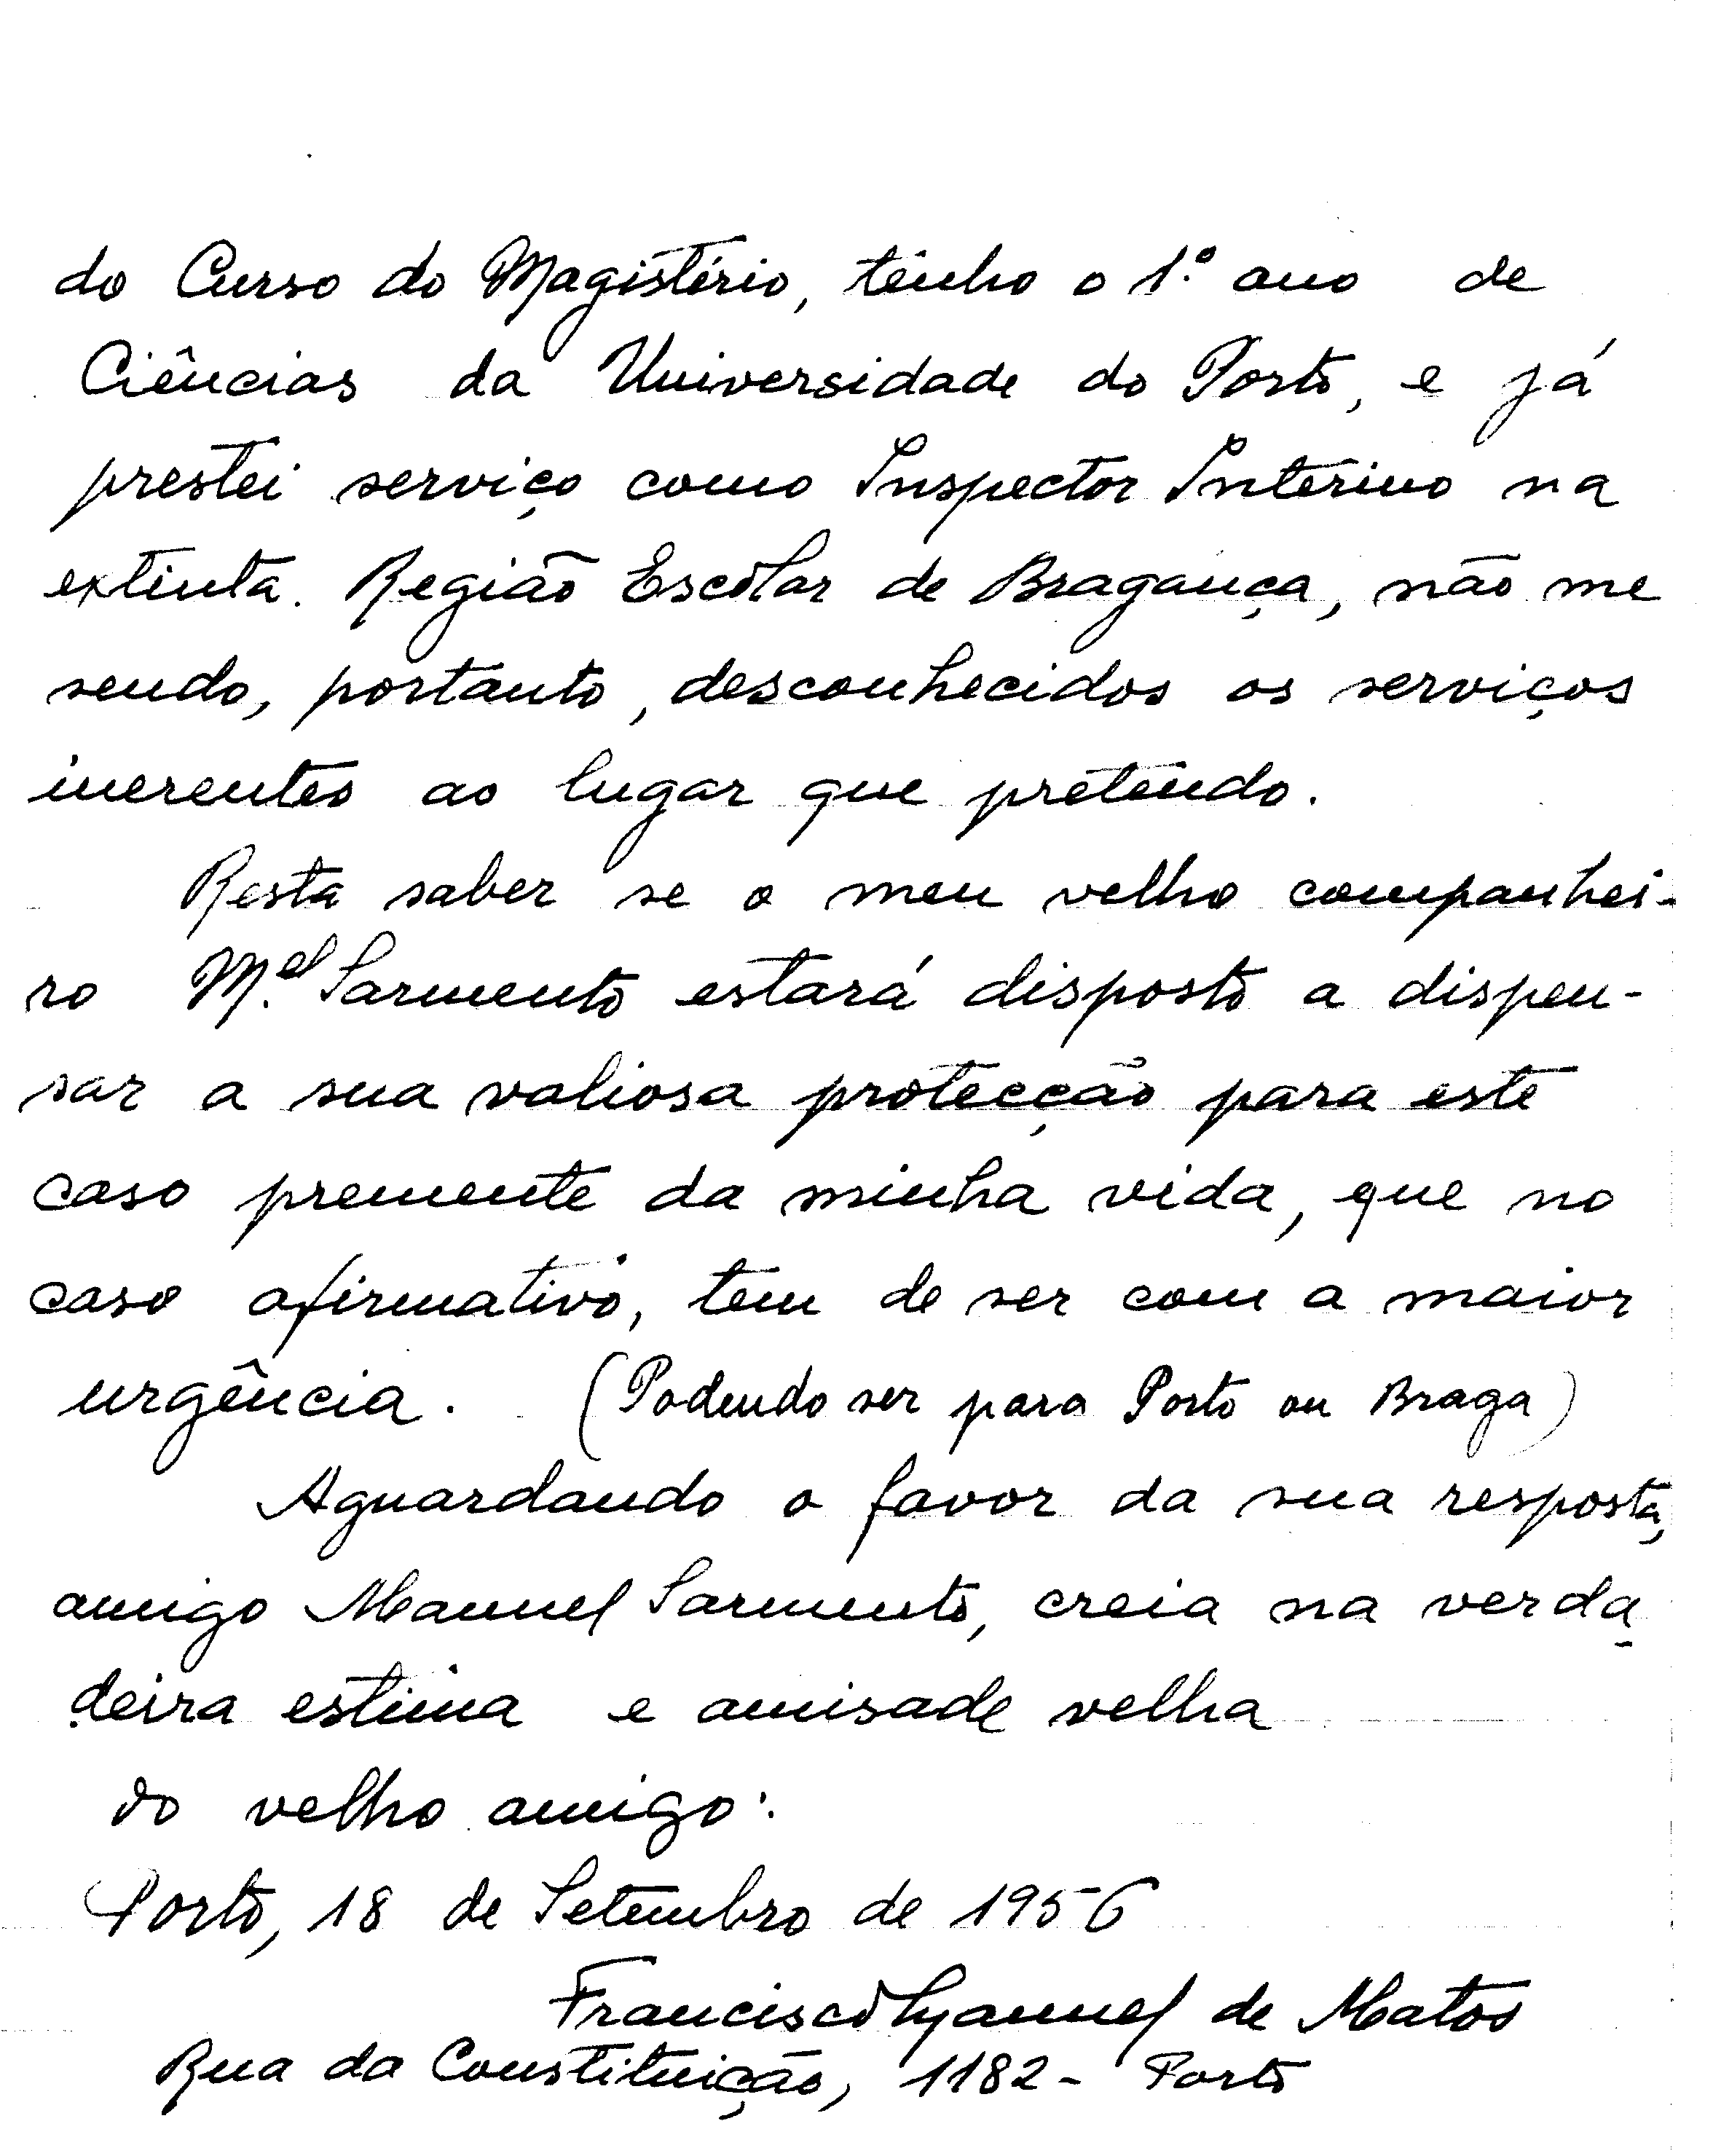 do Curso do Magistério, tenho o 1.º ano de
Ciências da Universidade do Porto, e já
prestei serviço como Inspector Interino na
extinta Região Escolar de Bragança, não me
sendo, portanto, desconhecidos os serviços
inerentes ao lugar que pretendo.
Resta saber se o meu velho companhei-
ro M.el Sarmento estará disposto a dispen-
sar a sua valiosa protecção para este
caso premente da minha vida, que no
caso afirmativo, tem de ser com a maior
urgência. (Podendo ser para Porto ou Braga)
Aguardando o favor da sua resposta,
amigo Manuel Sarmento, creia na verda-
deira estima e amisade velha
do velho amigo:
Porto, 18 de Setembro de 1956
Francisco Manuel de Matos
Rua da Constituição, 1182 - Porto